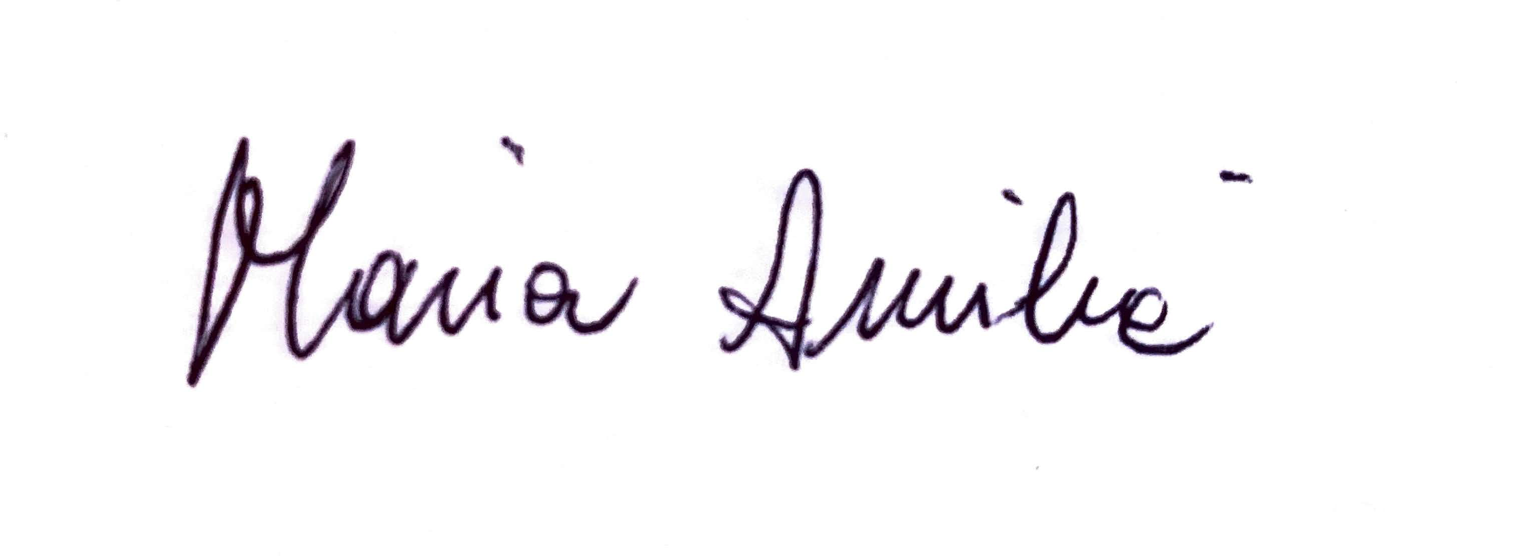 Maria Amilia